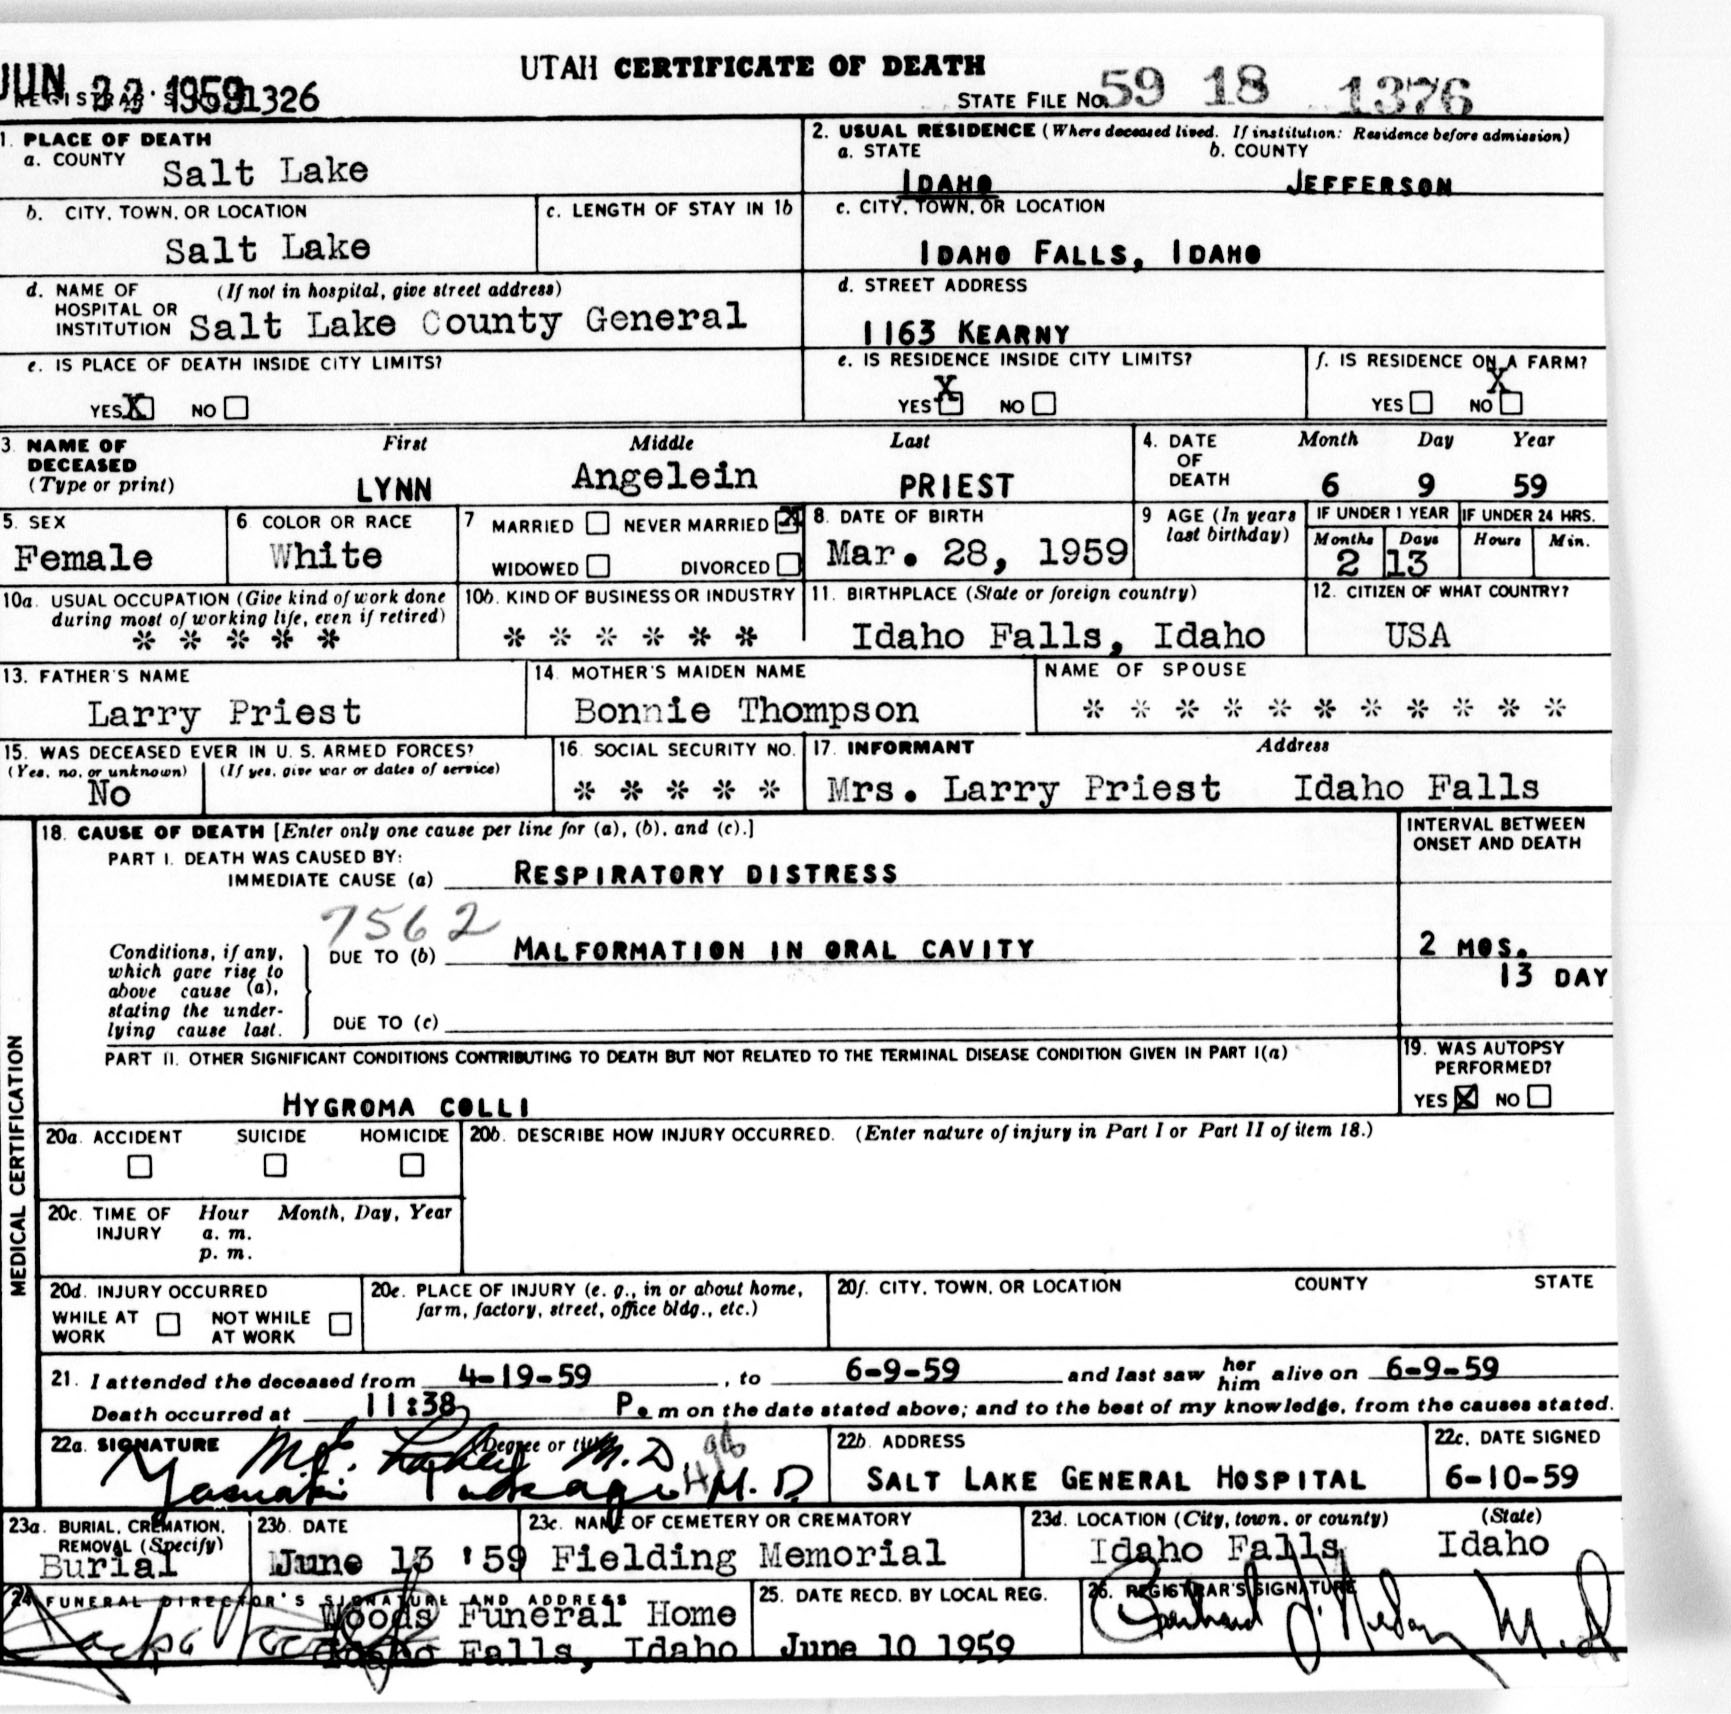 UTAH CERTIFICATE OF DEATH
JUN 23 1959 1326
STATE FILE NO. 59 18 1376
1. PLACE OF DEATH
a. COUNTY Salt Lake
2. USUAL RESIDENCE (Where deceased lived. If institution: Residence before admission)
a. STATE IDAHO b. COUNTY JEFFERSON
b. CITY, TOWN, OR LOCATION Salt Lake
c. LENGTH OF STAY IN 1b
c. CITY, TOWN, OR LOCATION
IDAHO FALLS, IDAHO
d. NAME OF HOSPITAL OR INSTITUTION (If not in hospital, give street address)
Salt Lake County General
d. STREET ADDRESS
1163 KEARNY
e. IS PLACE OF DEATH INSIDE CITY LIMITS?
YES X NO
e. IS RESIDENCE INSIDE CITY LIMITS?
YES X NO
f. IS RESIDENCE ON A FARM?
YES NO X
3. NAME OF DECEASED (Type or print)
First Middle Last
LYNN Angelein PRIEST
4. DATE OF DEATH
Month Day Year
6 9 59
5. SEX
Female
6 COLOR OR RACE
White
7 MARRIED NEVER MARRIED X
WIDOWED DIVORCED
8. DATE OF BIRTH
Mar. 28, 1959
9 AGE (In years last birthday)
IF UNDER 1 YEAR IF UNDER 24 HRS.
Months Days Hours Min.
2 13
10a. USUAL OCCUPATION (Give kind of work done during most of working life, even if retired)
* * * * *
10b. KIND OF BUSINESS OR INDUSTRY
* * * * * *
11. BIRTHPLACE (State or foreign country)
Idaho Falls, Idaho
12. CITIZEN OF WHAT COUNTRY?
USA
13. FATHER'S NAME
Larry Priest
14. MOTHER'S MAIDEN NAME
Bonnie Thompson
NAME OF SPOUSE
* * * * * * * * * * *
15. WAS DECEASED EVER IN U. S. ARMED FORCES?
(Yes, no, or unknown) (If yes, give war or dates of service)
No
16. SOCIAL SECURITY NO.
* * * * *
17. INFORMANT Address
Mrs. Larry Priest Idaho Falls
MEDICAL CERTIFICATION
18. CAUSE OF DEATH [Enter only one cause per line for (a), (b), and (c).]
INTERVAL BETWEEN ONSET AND DEATH
PART I. DEATH WAS CAUSED BY:
IMMEDIATE CAUSE (a) RESPIRATORY DISTRESS
7562
Conditions, if any, which gave rise to above cause (a), stating the underlying cause last.
DUE TO (b) MALFORMATION IN ORAL CAVITY
2 MOS.
13 DAY
DUE TO (c)
PART II. OTHER SIGNIFICANT CONDITIONS CONTRIBUTING TO DEATH BUT NOT RELATED TO THE TERMINAL DISEASE CONDITION GIVEN IN PART I(a)
HYGROMA COLLI
19. WAS AUTOPSY PERFORMED?
YES X NO
20a. ACCIDENT SUICIDE HOMICIDE
20b. DESCRIBE HOW INJURY OCCURRED. (Enter nature of injury in Part I or Part II of item 18.)
20c. TIME OF INJURY Hour Month, Day, Year
a. m.
p. m.
20d. INJURY OCCURRED
WHILE AT WORK NOT WHILE AT WORK
20e. PLACE OF INJURY (e. g., in or about home, farm, factory, street, office bldg., etc.)
20f. CITY, TOWN, OR LOCATION COUNTY STATE
21. I attended the deceased from 4-19-59, to 6-9-59 and last saw her him alive on 6-9-59
Death occurred at 11:38 P. m on the date stated above; and to the best of my knowledge, from the causes stated.
22a. SIGNATURE (Degree or title)
M.D.
M.D.
22b. ADDRESS
SALT LAKE GENERAL HOSPITAL
22c. DATE SIGNED
6-10-59
23a. BURIAL, CREMATION, REMOVAL (Specify)
Burial
23b. DATE
June 13 '59
23c. NAME OF CEMETERY OR CREMATORY
Fielding Memorial
23d. LOCATION (City, town, or county) (State)
Idaho Falls Idaho
24. FUNERAL DIRECTOR'S SIGNATURE AND ADDRESS
Woods Funeral Home
Idaho Falls, Idaho
25. DATE RECD. BY LOCAL REG.
June 10 1959
26. REGISTRAR'S SIGNATURE
M.D